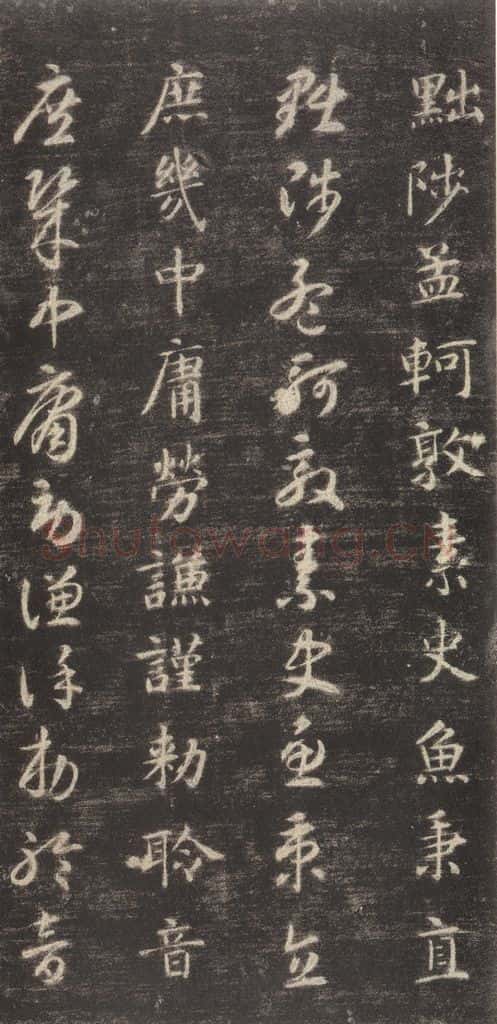 黜陟孟軻敦素史魚秉直
黜陟孟軻敦素史魚秉直
庶幾中庸勞謙謹勅聆音
庶幾中庸勞謙謹勅聆音
Shufawang.cn